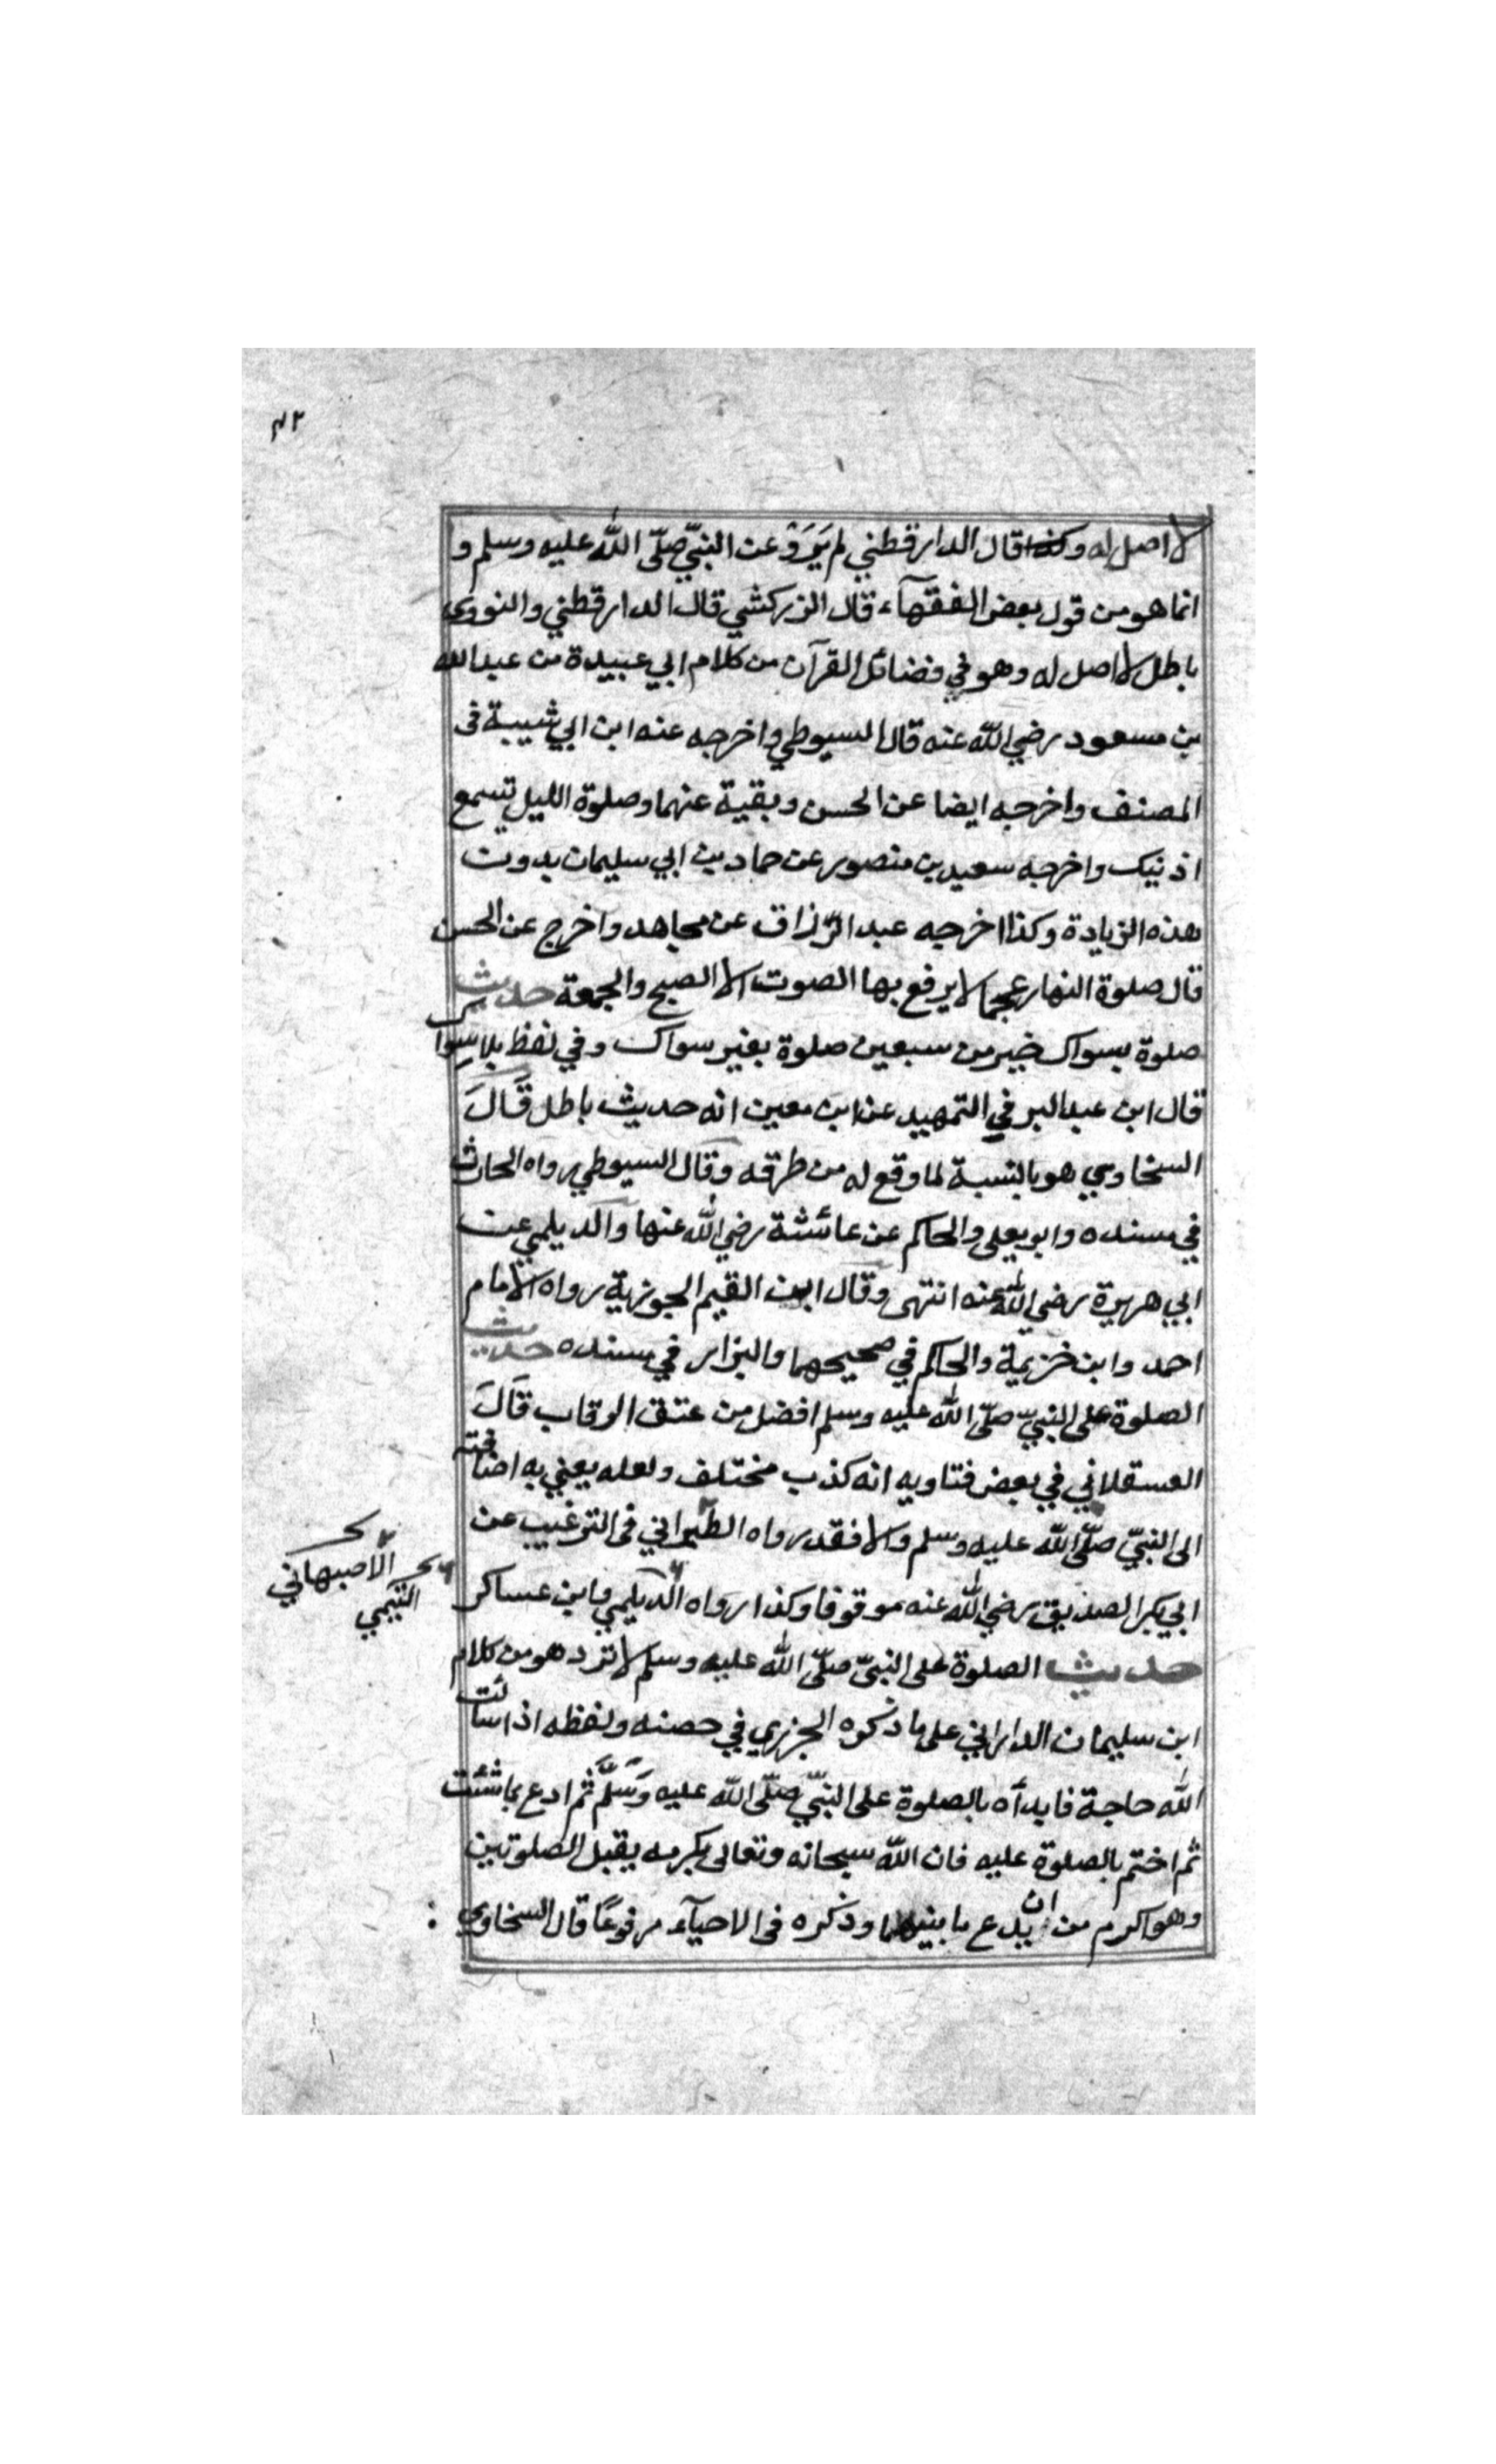 ٤٢
لا اصل له وكذا قال الدارقطني لم يَرَوْ عن النبيّ صلّى اللّٰه عليه وسلم و
انما هو من قول بعض الفقهآء قال الزركشي قال الدارقطني والنووي
باطل لا اصل له وهو في فضائل القرآن من كلام ابي عبيدة من عبد الله
بن مسعود رضي اللّٰه عنه قال السيوطي واخرجه عنه ابن ابي شيبة فى
المصنف واخرجه ايضا عن الحسن وبقية عنهما وصلوة الليل تسمع
اذنيك واخرجه سعيد بن منصور عن حماد بن ابي سليمان بدون
هذه الزيادة وكذا اخرجه عبد الرّزاق عن مجاهد واخرج عن الحسن
قال صلوة النهار عجما لا يرفع بها الصوت الا الصبح والجمعة حديث
صلوة بسواك خير من سبعين صلوة بغير سواك وفي لفظ بلا سواك
قال ابن عبد البر في التمهيد عن ابن معين انه حديث باطل قَالَ
السخاوي هو بالنسبة لما وقع له من طرقه وقال السيوطي رواه الحارث
في مسنده وابو يعلى والحاكم عن عائشة رضي اللّٰه عنها والديلمي عن
ابي هريرة رضي اللّٰه عنه انتهى وقال ابن القيم الجوزية رواه الامام
احمد وابن خزيمة والحاكم في صحيحهما والبزار في مسنده حديث
الصلوة على النبيّ صلّى اللّٰه عليه وسلم افضل من عتق الرقاب قَالَ
العسقلاني في بعض فتاويه انه كذب مختلف ولعله يعني به اضافته
الى النبيّ صلّى اللّٰه عليه وسلم والا فقد رواه الطبراني فى الترغيب عن
الاصبهاني
التيمي
ابي بكر الصديق رضي اللّٰه عنه موقوفا وكذا رواه الديلمي وابن عساكر
حديث الصلوة على النبيّ صلّى اللّٰه عليه وسلم لا ترد هو من كلام
ابن سليمان الداراني على ما ذكره الجزري في حصنه ولفظه اذا سألت
اللّٰه حاجة فابدأه بالصلوة على النبيّ صلّى اللّٰه عليه وَسَلَّم ثم ادع بما شئت
ثم اختم بالصلوة عليه فان اللّٰه سبحانه وتعالى بكرمه يقبل الصلوتين
وهو اكرم من ان يدع ما بينهما وذكره فى الاحيآء مرفوعًا قال السخاوي :